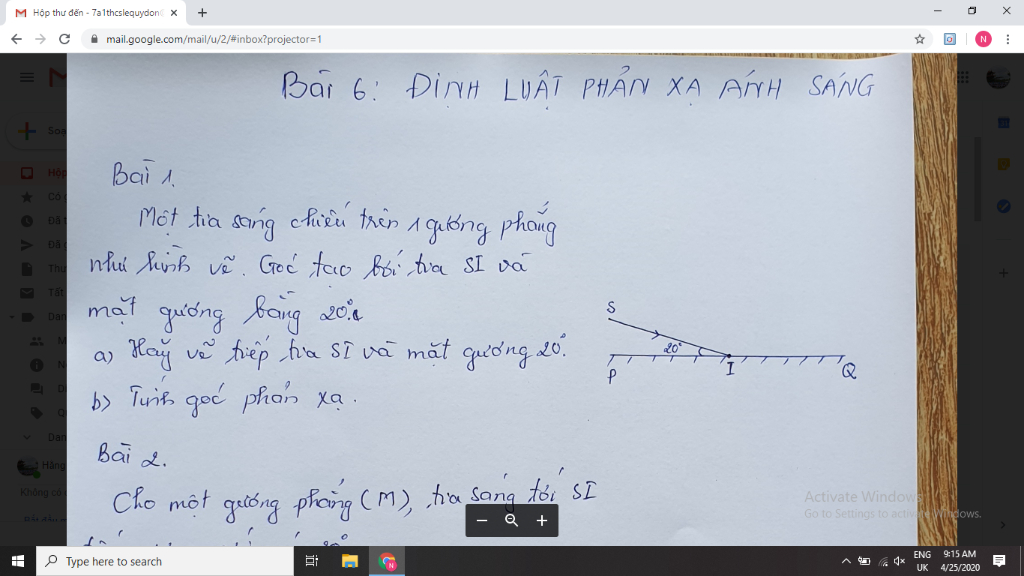 Hộp thư đến - 7a1thcslequydon
mail.google.com/mail/u/2/#inbox?projector=1
N
Bài 6: ĐỊNH LUẬT PHẢN XẠ ÁNH SÁNG
Soạ
Bài 1.
Một tia sáng chiếu trên 1 gương phẳng
như hình vẽ. Góc tạo bởi tia SI và
mặt gương bằng 20°.
a) Hãy vẽ tiếp tia SI và mặt gương 20°.
b) Tính góc phản xạ.
S
20°
P
I
Q
Bài 2.
Cho một gương phẳng (M), tia sáng tới SI
Hộp
Có g
Đã t
Đã g
Thư
Tất
Dan
Dan
Hằng
Không có
Activate Windows
Go to Settings to activate Windows.
Type here to search
ENG
UK
9:15 AM
4/25/2020